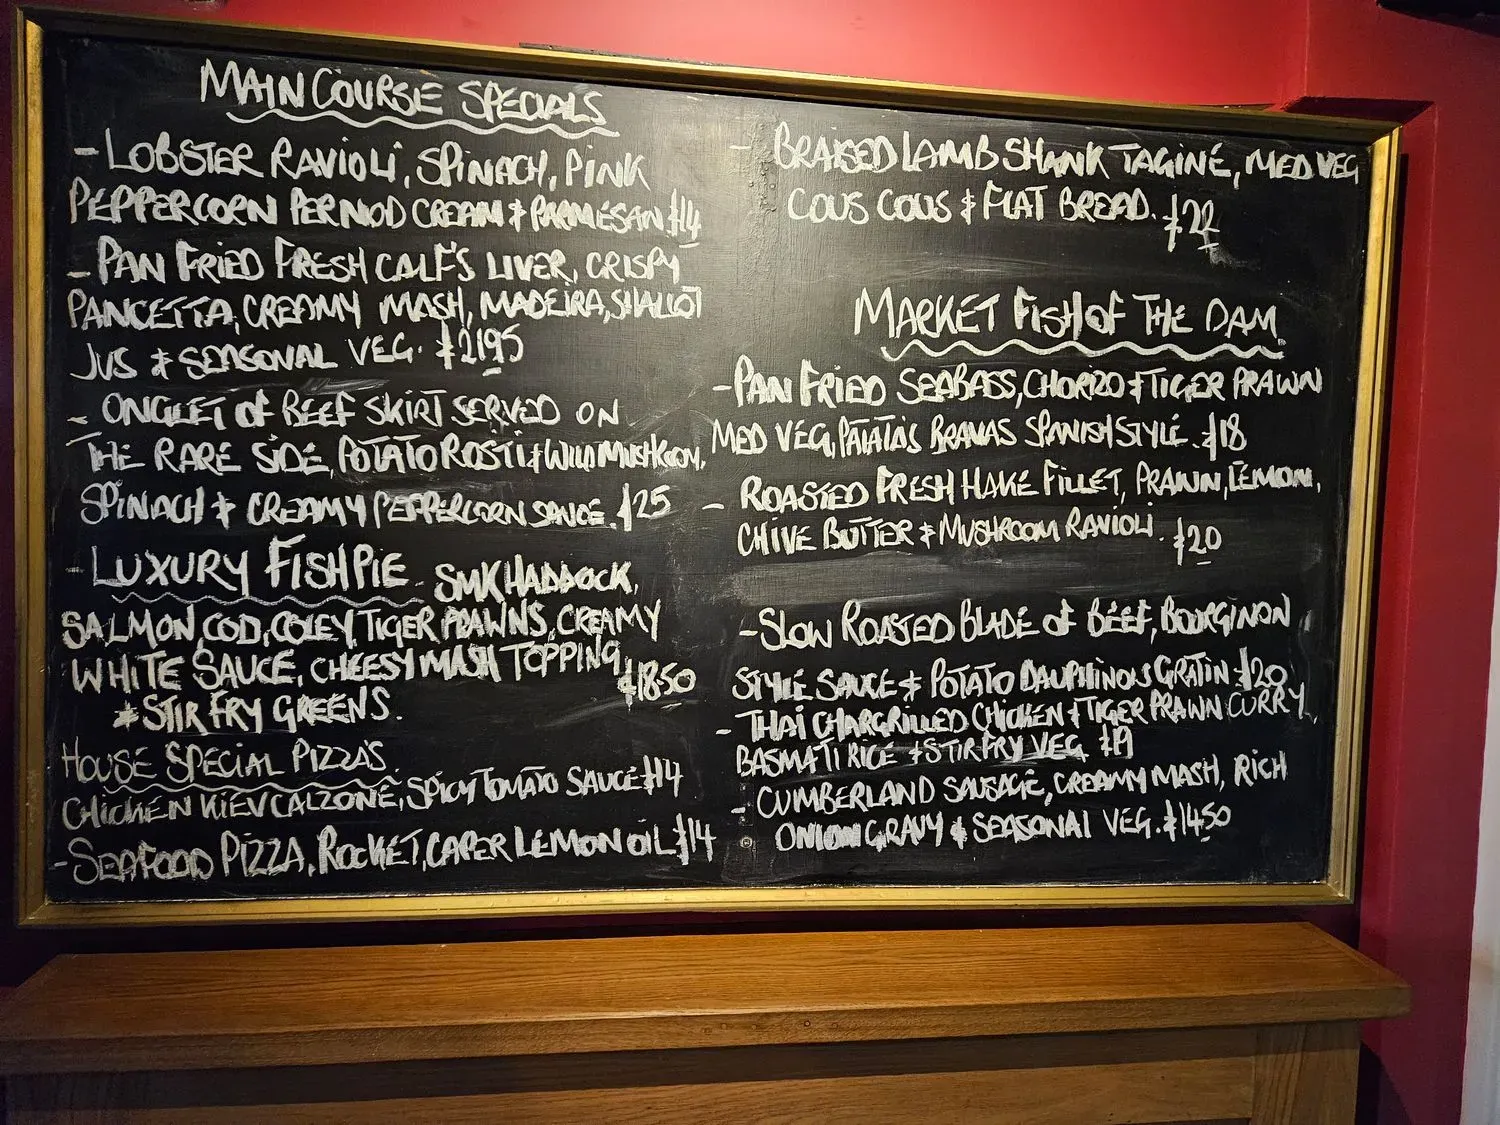 MAIN COURSE SPECIALS
- LOBSTER RAVIOLI, SPINACH, PINK
PEPPERCORN PERNOD CREAM & PARMESAN. £14
- PAN FRIED FRESH CALF'S LIVER, CRISPY
PANCETTA, CREAMY MASH, MADEIRA, SHALLOT
JUS & SEASONAL VEG. £21.95
- ONGLET of BEEF SKIRT SERVED ON
THE RARE SIDE, POTATO ROSTI & WILD MUSHROOM,
SPINACH & CREAMY PEPPERCORN SAUCE. £25
- LUXURY FISH PIE SMK HADDOCK,
SALMON, COD, COLEY, TIGER PRAWNS, CREAMY
WHITE SAUCE, CHEESY MASH TOPPING
& STIR FRY GREENS. £18.50
HOUSE SPECIAL PIZZA'S
CHICKEN KIEV CALZONE, SPICY TOMATO SAUCE £14
- SEAFOOD PIZZA, ROCKET, CAPER LEMON OIL £14
- BRAISED LAMB SHANK TAGINE, MED VEG
COUS COUS & FLAT BREAD. £22
MARKET FISH of THE DAM
- PAN FRIED SEABASS, CHORIZO & TIGER PRAWN
MED VEG, PATATAS BRAVAS SPANISH STYLE. £18
- ROASTED FRESH HAKE FILLET, PRAWN, LEMON,
CHIVE BUTTER & MUSHROOM RAVIOLI. £20
- SLOW ROASTED BLADE of BEEF, BOURGINON
STYLE SAUCE & POTATO DAUPHINOUS GRATIN £20
- THAI CHARGRILLED CHICKEN & TIGER PRAWN CURRY,
BASMATI RICE & STIR FRY VEG £19
- CUMBERLAND SAUSAGE, CREAMY MASH, RICH
ONION GRAVY & SEASONAL VEG. £14.50